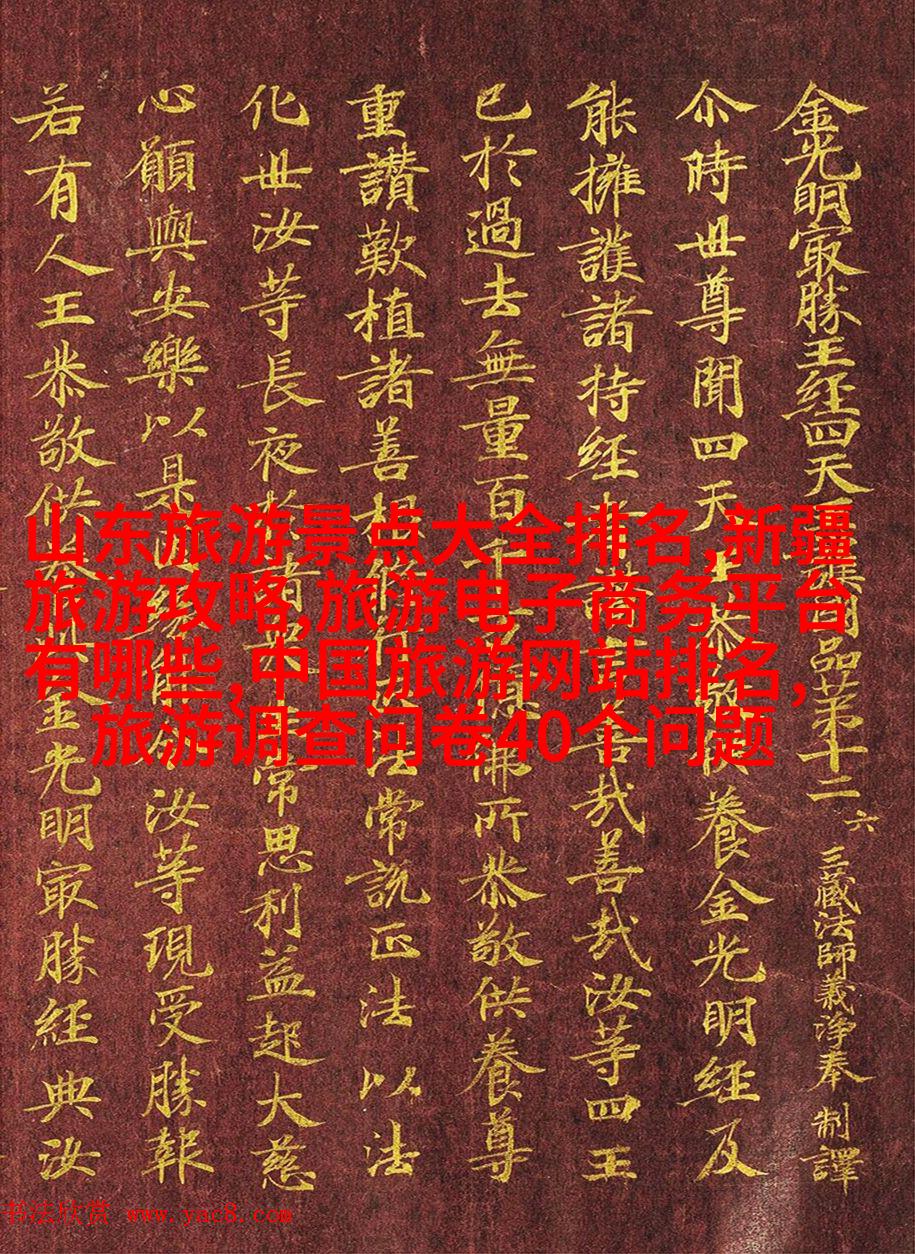 金光明㝡勝王経四天王護國品苐十二 六 三藏法師義淨奉 制譯
尒時世尊聞四天王恭敬供養金光明経及
能擁護諸持経者善哉善哉汝等四王
已於過去無量百千億佛所恭敬供養尊
重讃歎植諸善根修行正法常說正法以法
化世汝等長夜於常思利益起大慈
心願與安樂以是能令汝等現受勝報
若有人王恭敬供養金光明㝡勝経典汝
山东旅游景点大全排名,新疆
旅游攻略,旅游电子商务平台
有哪些,中国旅游网站排名,
旅游调查问卷40个问题
书法欣赏 www.yac8.com